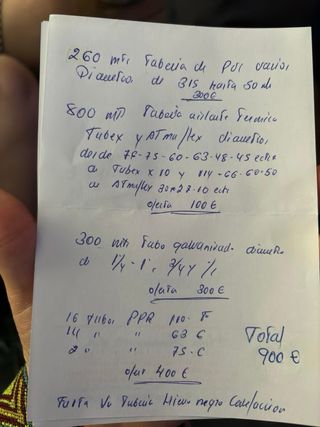 260 mts Tuberia de PVC varios
Diametros de 315 hasta 50 m
300€
800 mts Tuberia aislante Termico
Tubex y ATmaflex diametros
desde 78-75-60-63-48-45 ectra
a Tubex x 10 y 114-66-60-50
ATmaflex 30 28-10 ects
oferta 100 €
300 mts Tubo galvanizado diametro
de 1/4 - 1", 3/4 y
oferta 300 €
16 Tubos PPR 110- F
14 " " 63 C
2 " " 75-C
400 €
Total
900 €
Tubería Hierro negro Calefaccion